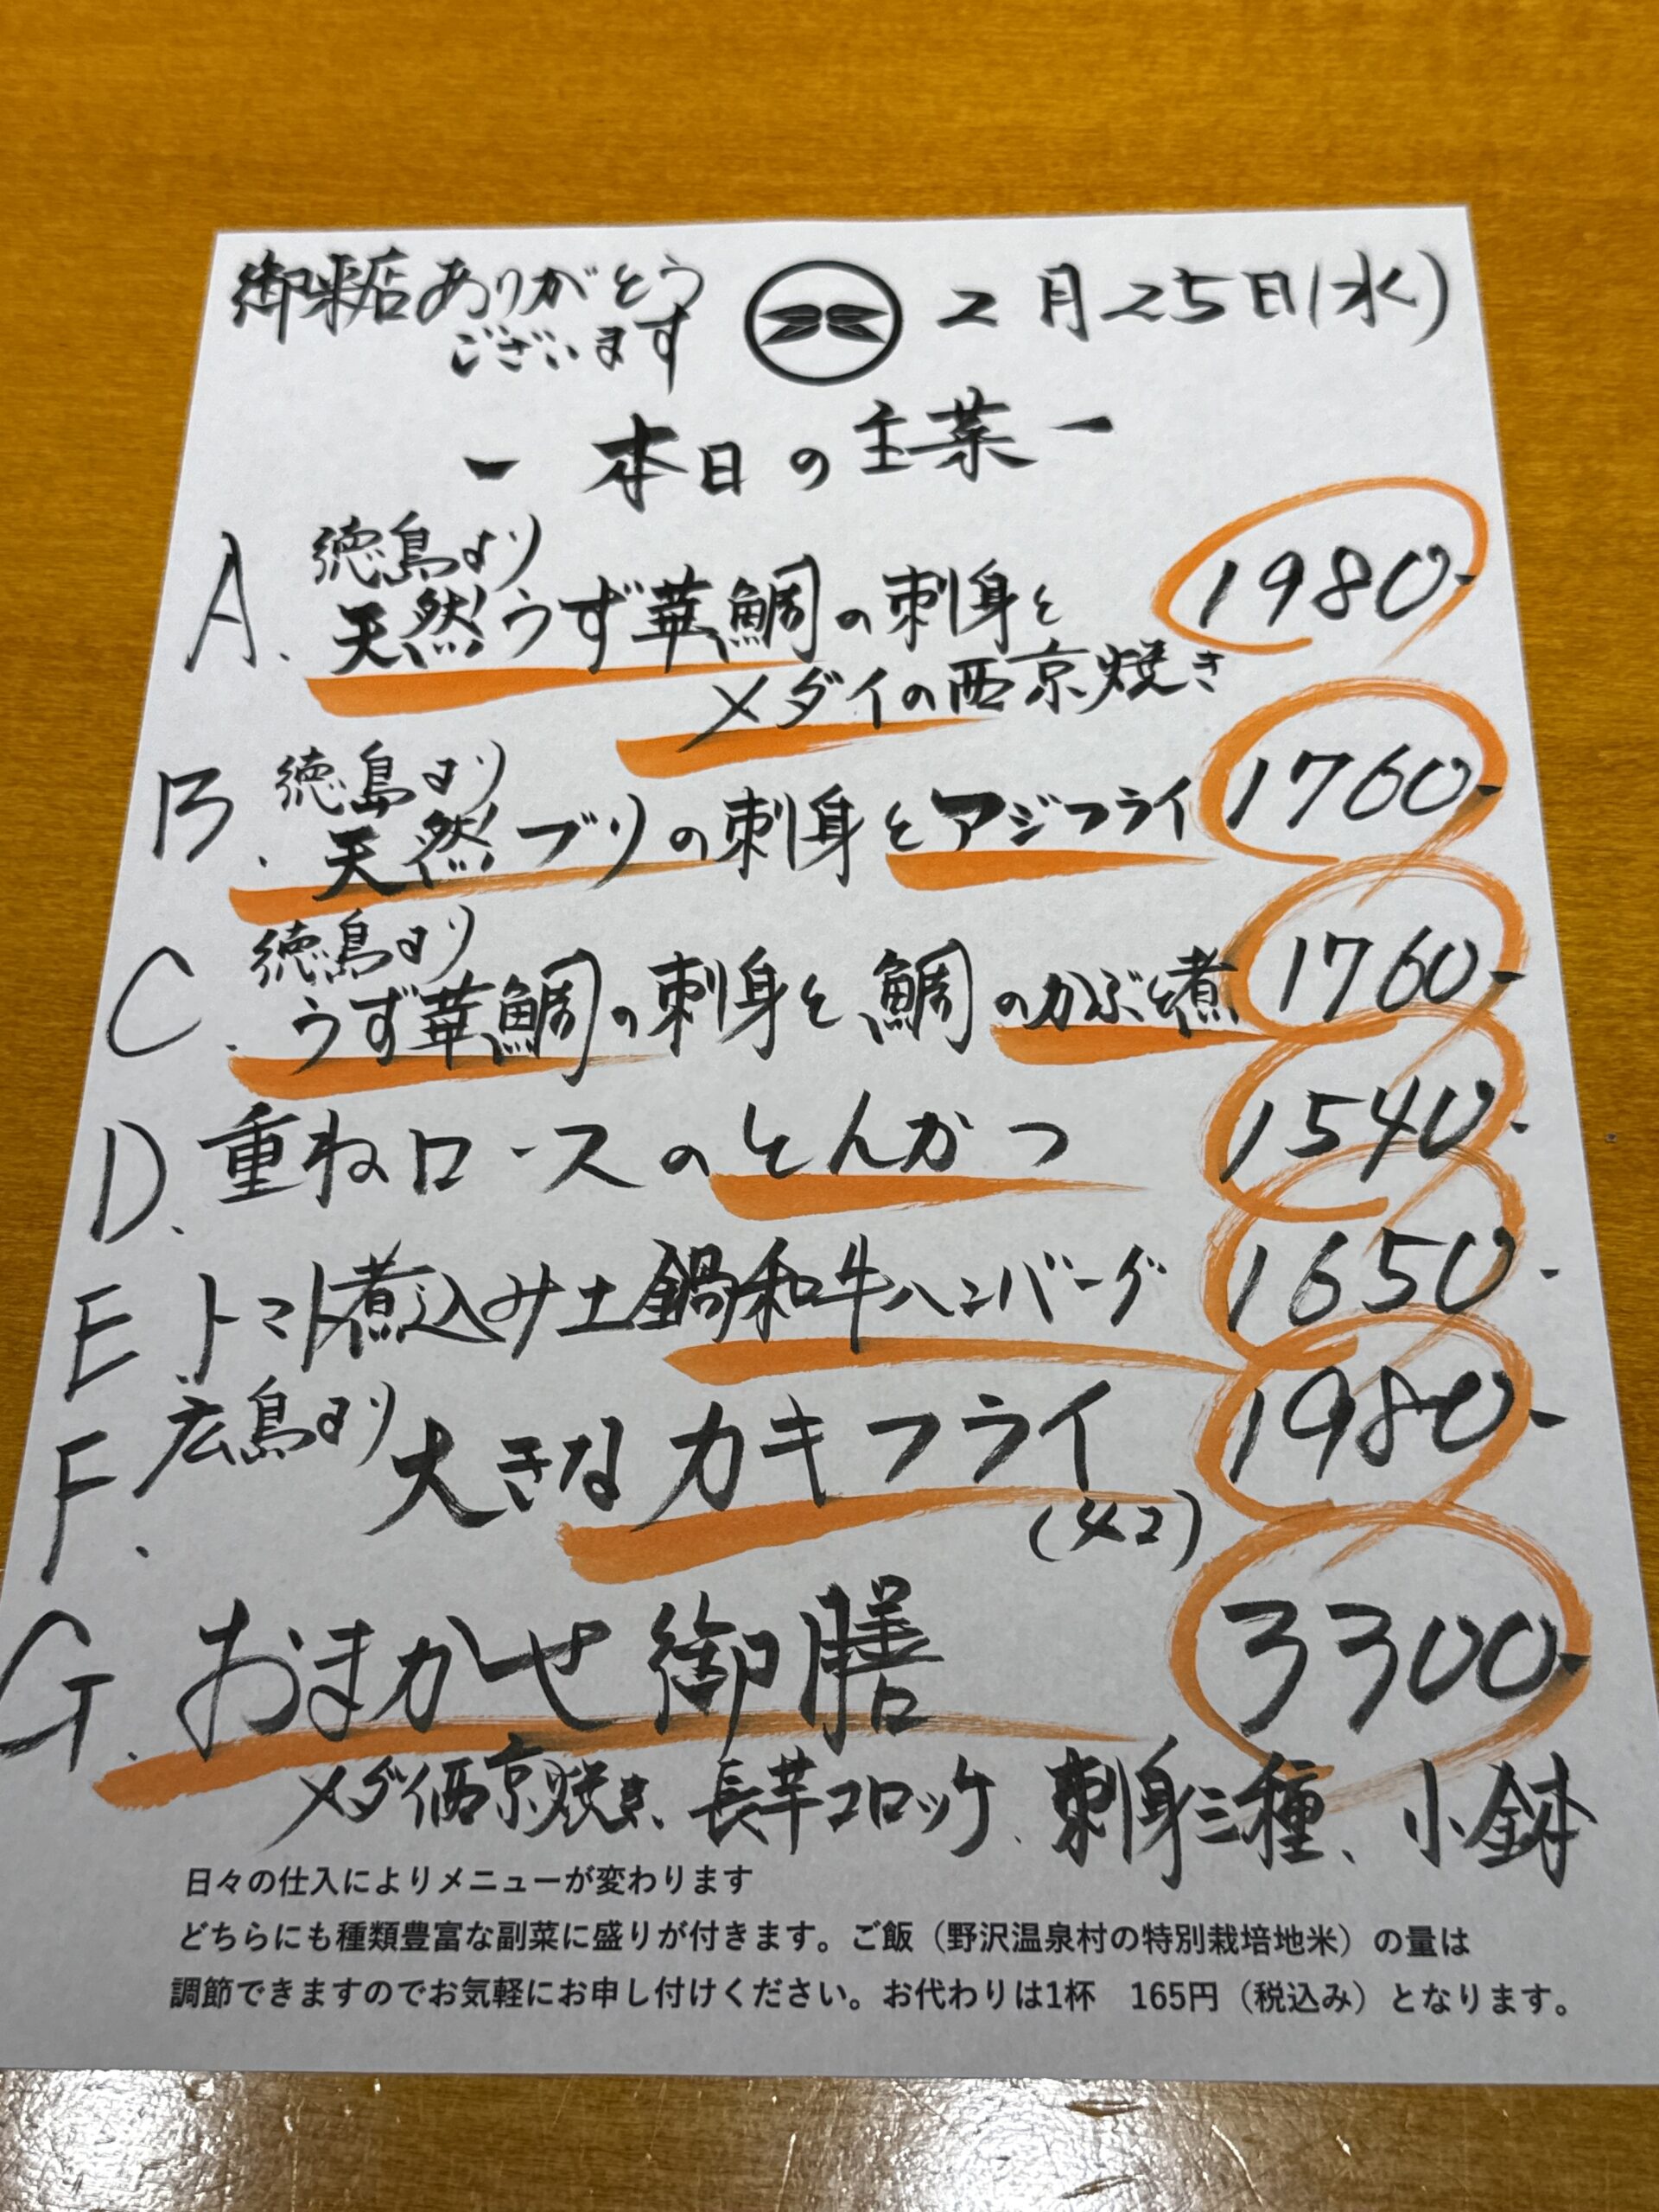 御来店ありがとう
ございます
2月25日(水)
- 本日の主菜 -
A. 徳島より
天然うず華鯛の刺身と
メダイの西京焼き
1980-
B. 徳島より
天然ブリの刺身とアジフライ
1760-
C. 徳島より
うず華鯛の刺身と鯛のかぶと煮
1760-
D. 重ねロースのとんかつ
1540-
E. トマト煮込み土鍋和牛ハンバーグ
1650-
F. 広島より
大きなカキフライ
(4コ)
1980-
G. おまかせ御膳
3300-
メダイ西京焼き、長芋コロッケ、刺身三種、小鉢
日々の仕入によりメニューが変わります
どちらにも種類豊富な副菜に盛りが付きます。ご飯（野沢温泉村の特別栽培地米）の量は
調節できますのでお気軽にお申し付けください。お代わりは1杯　165円（税込み）となります。